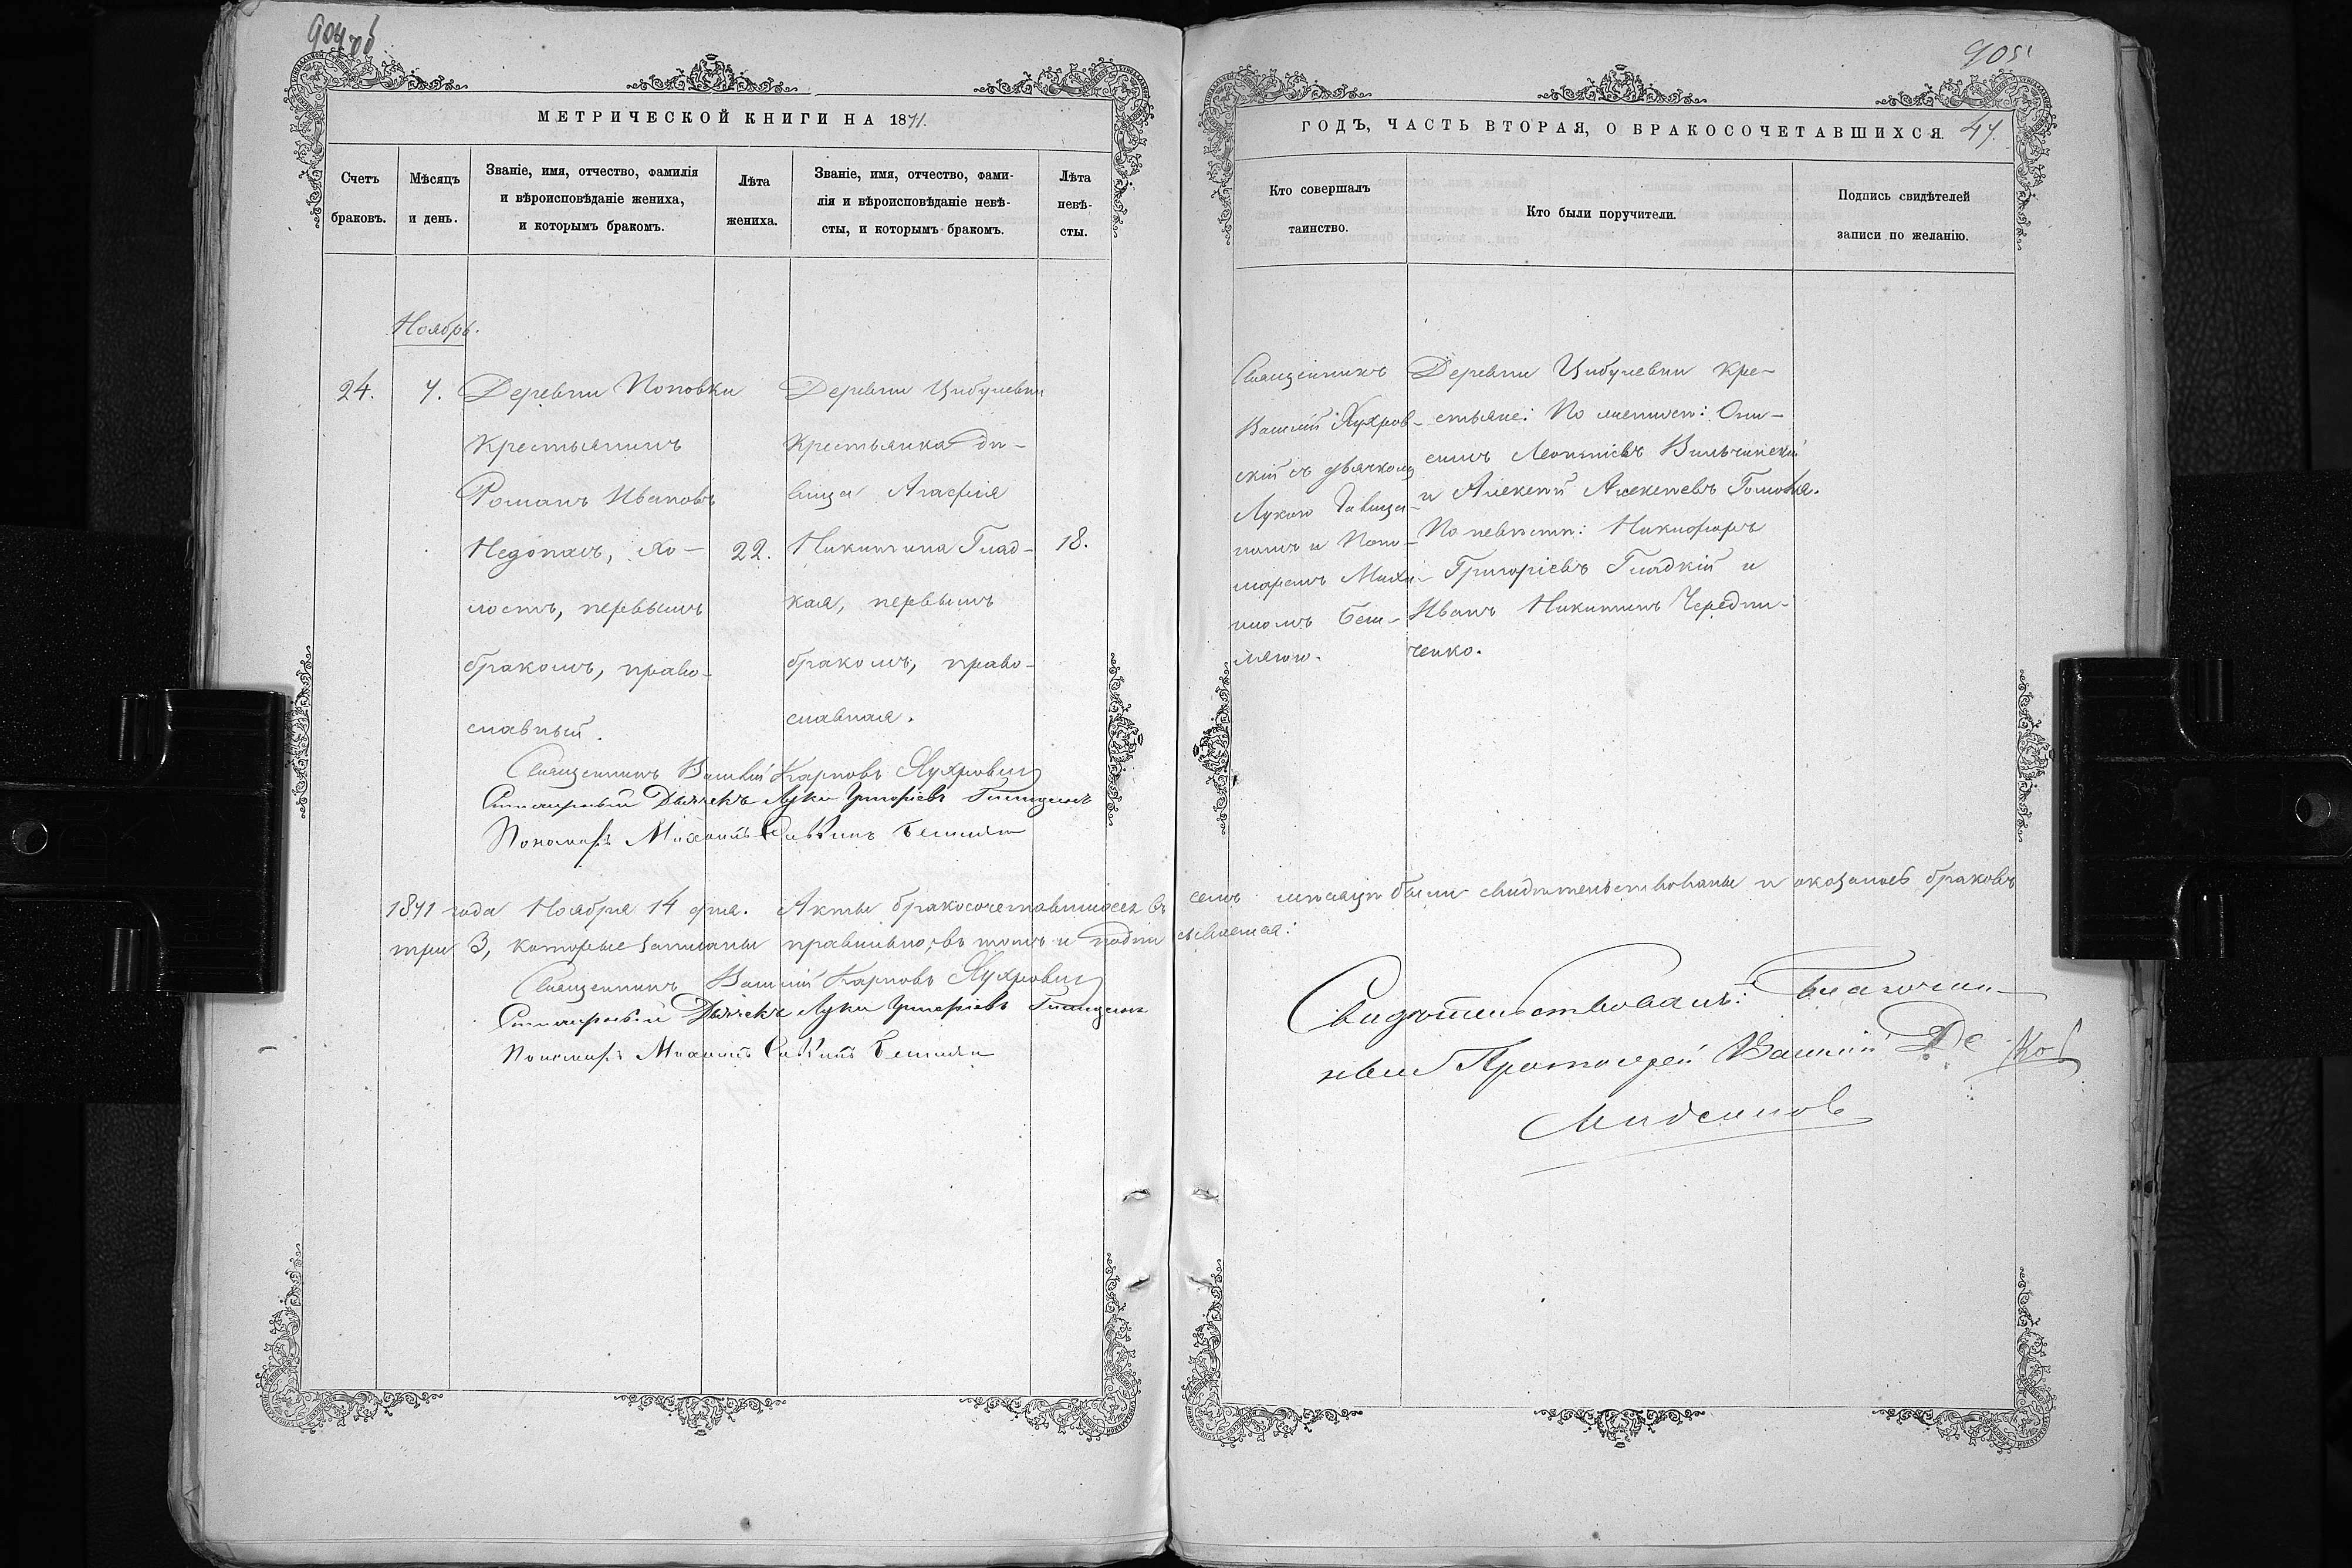 904 об
МЕТРИЧЕСКОЙ КНИГИ НА 1871.
Счетъ браковъ.
Мѣсяцъ и день.
Званіе, имя, отчество, фамилія
и вѣроисповѣданіе жениха,
и которымъ бракомъ.
Лѣта жениха.
Званіе, имя, отчество, фами-
лія и вѣроисповѣданіе невѣ-
сты, и которымъ бракомъ.
Лѣта невѣ-
сты.
Ноябрь.
24.
7.
Деревни Поповки
крестьянинъ
Романъ Ивановъ
Недопасъ, хо-
лостъ, первымъ
бракомъ, право-
славный.
22.
Деревни Цибулевки
крестьянка дѣ-
вица Агафія
Никитина Глад-
кая, первымъ
бракомъ, право-
славная.
18.
Священникъ Василій Карповъ
Дьячекъ Лука Григорьевъ
Пономарь Михаилъ Саввинъ
1871 года Ноября 14 дня. Акты бракосочетавшихся въ семъ мѣсяцѣ были свидѣтельствованы и оказалось браковъ
три 3, которые записаны правильно, въ томъ и подписываемся:
Священникъ Василій Карповъ
Дьячекъ Лука Григорьевъ
Пономарь Михаилъ Саввинъ
905
ГОДЪ, ЧАСТЬ ВТОРАЯ, О БРАКОСОЧЕТАВШИХСЯ. 47.
Кто совершалъ
таинство.
Кто были поручители.
Подпись свидѣтелей
записи по желанію.
Священникъ
Василій Яхров-
скій съ дьячкомъ
Лукою
номъ и Поно-
маремъ Миха-
иломъ
Деревни Цибулевки кре-
стьяне: По женихѣ: Они-
симъ Леонтіевъ Вильчинскій
и Алексѣй Алексѣевъ
По невѣстѣ: Никифоръ
Григоріевъ Гладкій и
Иванъ Никитинъ Чередни-
ченко.
Свидѣтельствовалъ: Благочин-
ный Протоіерей Василій